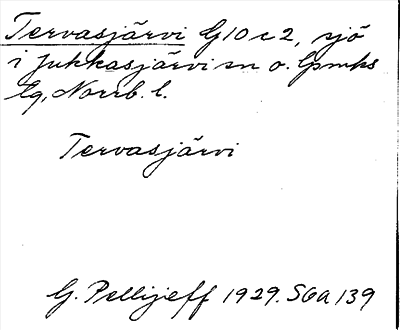 Tervasjärvi G10c2, sjö
i Jukkasjärvi sn o. lpmks
lg, Norrb. l.
Tervasjärvi
G. Pellijeff 1929. SGa 139